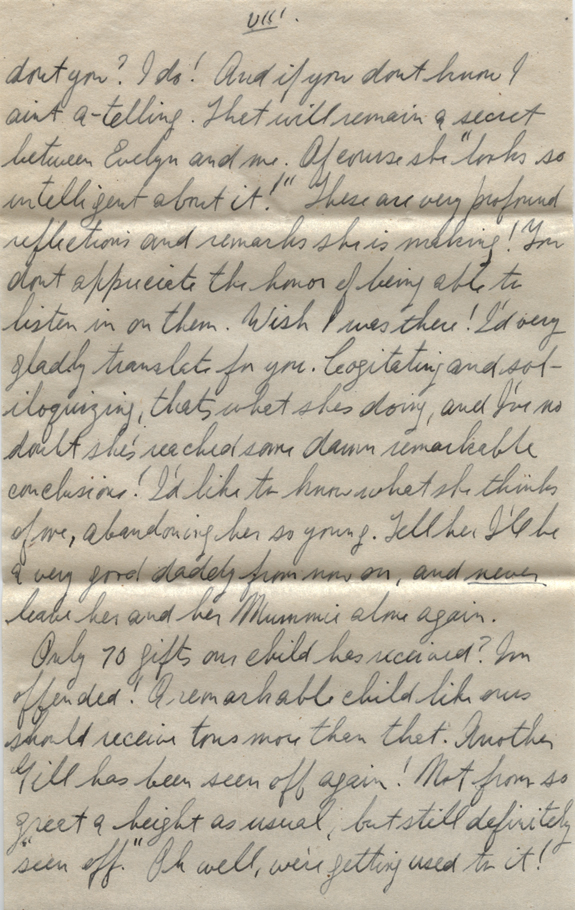 VII.
dont you? I do! And if you dont know I
aint a-telling. That will remain a secret
between Evelyn and me. Of course she "looks so
intelligent about it!" These are very profound
reflections and remarks she is making! You
dont appreciate the honor of being able to
listen in on them. Wish I was there! I'd very
gladly translate for you. Cogitating and sol-
iloquizing, thats what she's doing, and I've no
doubt she's reached some damn remarkable
conclusions! I'd like to know what she thinks
of me, abandoning her so young. Tell her I'll be
a very good daddy from now on, and never
leave her and her Mummie alone again.
Only 70 gifts our child has received? Im
offended! A remarkable child like ours
should receive tons more than that. Another
Gill has been seen off again! Not from so
great a height as usual, but still definitely
"seen off." Oh well, we're getting used to it!